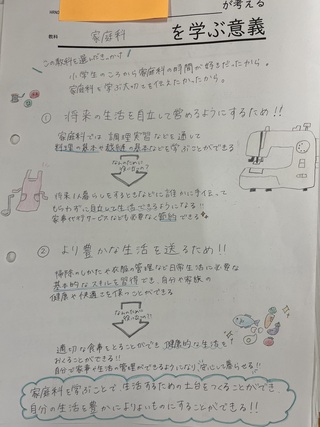 が考える
教科 家庭科 を学ぶ意義
この教科を選んだきっかけ!
小学生のころから家庭科の時間が好きだったから。
家庭科を学ぶ大切さを伝えたかったから。
① 将来の生活を自立して営めるようにするため!!
家庭科では調理実習などを通して
料理の基本や裁縫の基本などを学ぶことができる
なんのために
将来1人暮らしをするときなどに誰かに手伝って
もらわずに自立して生活できるようになる!!
家事代行サービスなども必要なく節約できる
② より豊かな生活を送るため!!
掃除のしかたや衣服の管理など日常生活に必要な
基本的なスキルを習得でき、自分や家族の
健康や快適さを保つことができる
なんのために
適切な食事をとることができ健康的な生活を
おくることができる!!
自分で家事や生活の管理ができるようになり安心して暮らせる!!
家庭科を学ぶことで、生活するための土台をつくることができ、
自分の生活を豊かによりよいものにすることができる!!